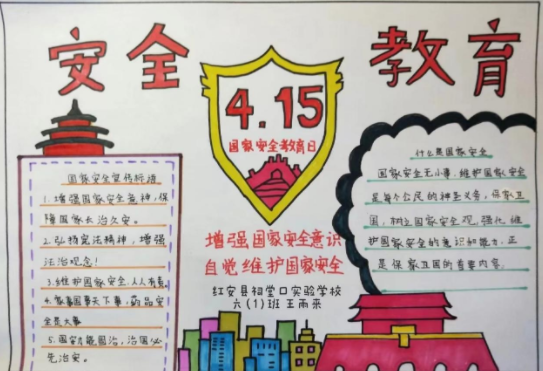 安全教育
4.15
国家安全教育日
增强国家安全意识
自觉维护国家安全
红安县祠堂口实验学校
六(1)班 王雨采
国家安全宣传标语
1.增强国家安全意神,保
障国家长治久安。
2.弘扬宪法精神,增强
法治观念!
3.维护国家安全,人人有责
4.家事国事天下事,药品安
全是大事
5.国安才能国治,治国必
先治安。
什么是国家安全
国家安全无小事,维护国家安全
是每个公民的神圣义务,保家卫
国,树立国家安全观,强化维
护国家安全的意识和能力,正
是保家卫国的首要内容